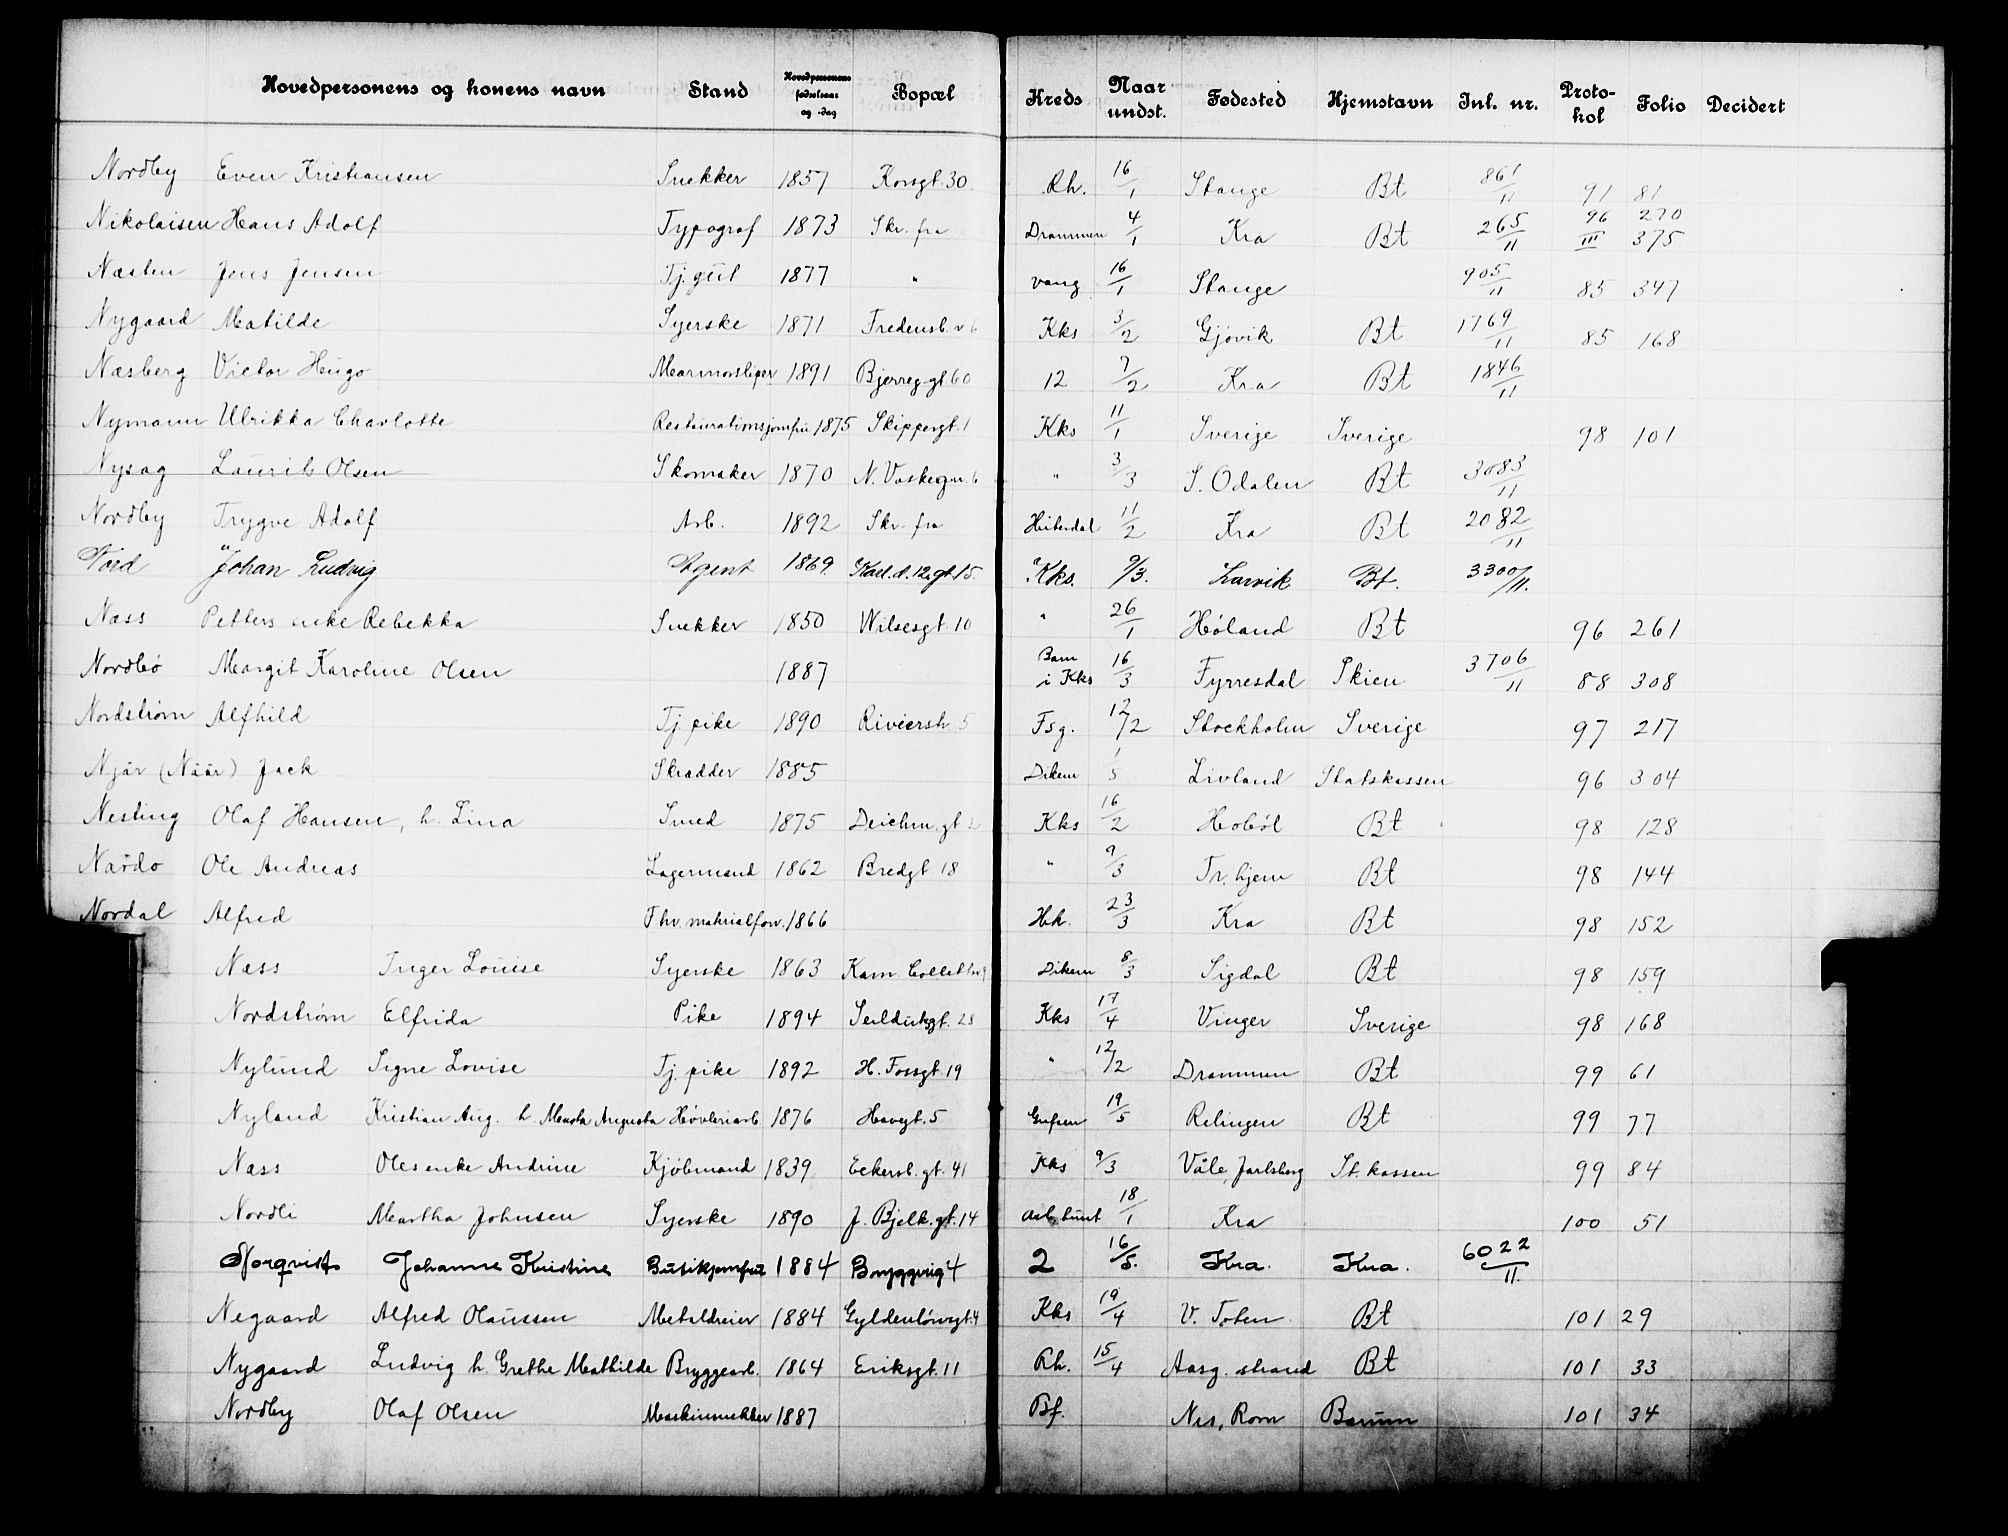 Hovedpersonens og konens navn Stand Hovedpersonens fødselsaar og -dag Bopæl Kreds Naar undst. Fødested Hjemstavn Inl. nr. Protokol Folio Decidert
Nordby Even Kristiansen Snekker 1857 Korsgt. 30 Rh. 16/1 Stange Bt 861/11 91 81
Nikolaisen Hans Adolf Typograf 1873 Skr. fra Drammen 4/1 Kra Bt 265/11 96 270 III 375
Næsten Jens Jensen Tj.gut 1877 " Vang 16/1 Stange 905/11 85 347
Nygaard Matilde Syerske 1871 Fredensb. v 6 Kks 3/2 Gjøvik Bt 1769/11 85 168
Næsberg Victor Hugo Marmorsliper 1891 Bjerreg.gt 60 12 7/2 Kra Bt 1846/11
Nymann Ulrikka Charlotte Restaurationsjomfru 1875 Skippergt. 1 Kks 11/1 Sverige Sverige 98 101
Nysag Laurits Olsen Skomaker 1870 N. Vaskegn. 6 " 3/3 S. Odalen Bt 3083/11
Nordby Trygve Adolf Arb. 1892 Skr. fra Hitterdal 11/2 Kra Bt 2082/11
Johan Ludvig Agent 1869 Karl.d.12.gt.15. Kks. 9/3. Larvik Bt. 3300/11.
Næss Petters enke Rebekka Snekker 1850 Wilsesgt. 10 " 26/1 Høland Bt 96 261
Nordbø Margit Karoline Olsen 1887 Barn i Kks 16/3 Fyrresdal Skien 3706/11 88 308
Nordstrøm Alfhild Tj. pike 1890 Rivierstr. 5 Fsg. 12/2 Stockholm Sverige 97 217
Njár (Náár) Jack Skrædder 1885 Dikem. 1/5 Livland Statskassen 96 304
Nesting Olaf Hansen, h. Lina Smed 1875 Deichm. gt 2 Kks 16/2 Hobøl Bt 98 128
Nardo Ole Andreas Lagermand 1862 Bredgt 18 " 9/3 Tr.hjem Bt 98 144
Nordal Alfred Fhv. materialforv. 1866 Hk. 23/3 Kra Bt 98 152
Næss Inger Louise Syerske 1863 Kam. Collettsv 9 Dikem. 8/3 Sigdal Bt 98 159
Nordstrøm Elfrida Pike 1894 Seilduksgt. 23 Kks 17/4 Vinger Sverige 98 168
Nylund Signe Lovise Tj. pike 1892 H. Fossgt. 19 " 12/2 Drammen Bt 99 61
Nyland Kristian Aug. h. Marta Augusta Høvleriarb 1876 Havegt. 5 Grefsen 19/5 Relingen Bt 99 77
Næss Oles enke Andrine Kjøbmand 1839 Eckersb. gt. 41 Kks 9/3 Våle, Jarlsberg St. kassen 99 84
Nordli Martha Johnsen Syerske 1890 J. Bjelk. gt. 14 Arb.stuet 18/1 Kra 100 51
Norqvist Johanne Kristine Butikjomfru 1884 Bryggveig 4 2 16/5. Kra. Kra. 6022/11.
Negaard Alfred Olaussen Metaldreier 1884 Gyldenløvsgt. 4 Kks 19/4 V. Toten Bt 101 29
Nygaard Ludvig h. Grethe Mathilde Bryggearb. 1864 Eriksgt. 11 Rh. 15/4 Aasg. strand Bt 101 33
Nordby Olaf Olsen Maskinsnekker 1887 Bf. Nes, Rom Bærum 101 34